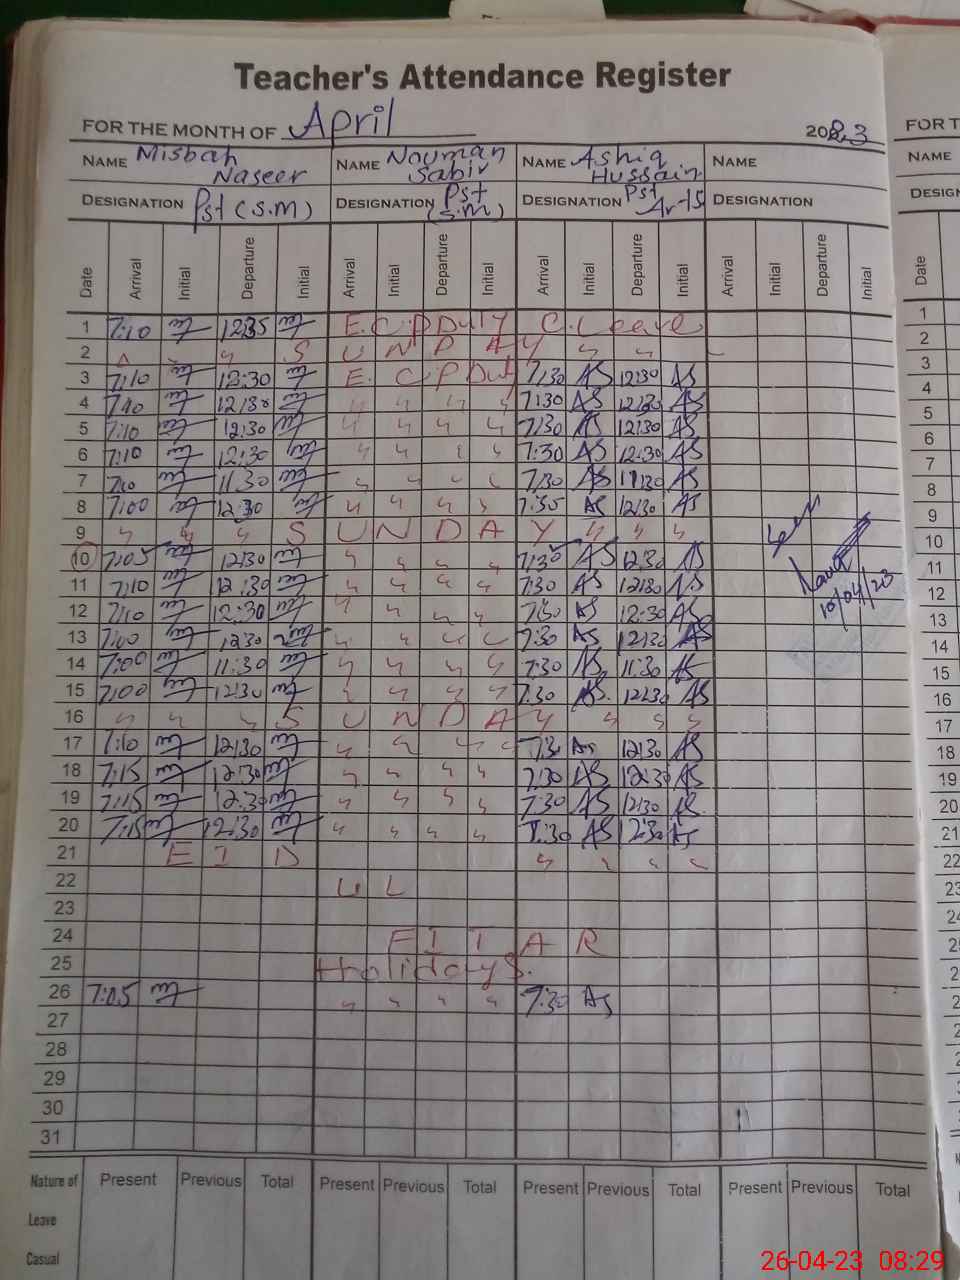 Teacher's Attendance Register
FOR THE MONTH OF April 2023
NAME Misbah Naseer NAME Nouman Sabir NAME Ashiq Hussain NAME
DESIGNATION Pst (S.M) DESIGNATION Pst (S.M) DESIGNATION Pst Arts DESIGNATION
Date Arrival Initial Departure Initial Arrival Initial Departure Initial Arrival Initial Departure Initial Arrival Initial Departure Initial
1 7:10 12:35 E.C.P Duty C. Leave
2 S U N D A Y
3 7:10 12:30 E. C P Duty 7:30 AS 12:30 AS
4 7:10 12:30 7:30 AS 12:30 AS
5 7:10 12:30 7:30 AS 12:30 AS
6 7:10 12:30 7:30 AS 12:30 AS
7 7:10 11:30 7:30 AS 11:30 AS
8 7:00 12:30 7:35 AS 12:30 AS
9 S U N D A Y
10 7:05 12:30 7:30 AS 12:30 AS
11 7:10 12:30 7:30 AS 12:30 AS
12 7:10 12:30 7:30 AS 12:30 AS
10/04/23
13 7:00 12:30 7:30 AS 12:30 AS
14 7:00 11:30 7:30 AS 11:30 AS
15 7:00 12:30 7:30 AS. 12:30 AS
16 S U N D A Y
17 7:10 12:30 7:30 AS 12:30 AS
18 7:15 12:30 7:30 AS 12:30 AS
19 7:15 12:30 7:30 AS 12:30 AS
20 7:15 12:30 7:30 AS 12:30 AS
21 E I D
22 U L
23
24 F I T A R
25 Holidays.
26 7:05 7:30 AS
27
28
29
30
31
Nature of Leave Present Previous Total Present Previous Total Present Previous Total Present Previous Total
Casual
FOR T
NAME
DESIGN
Date
1
2
3
4
5
6
7
8
9
10
11
12
13
14
15
16
17
18
19
20
21
22
23
24
26-04-23 08:29